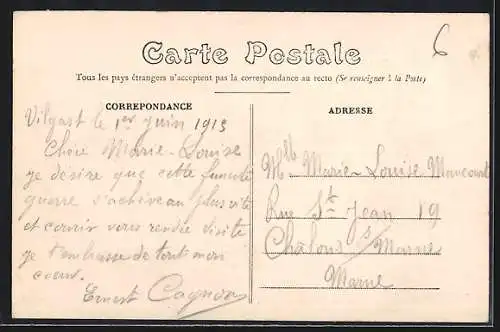 Carte Postale
6
Tous les pays étrangers n'acceptent pas la correspondance au recto (Se renseigner à la Poste)
CORREPONDANCE
ADRESSE
le 1er juin 1915
Chère Marie-Louise
je désire que cette funeste
guerre s'achève au plus vite
et courir vous rendre visite
je t'embrasse de tout mon
coeur.
Ernest
Mlle Marie-Louise
Rue St Jean 19
Châlons s/ Marne
Marne